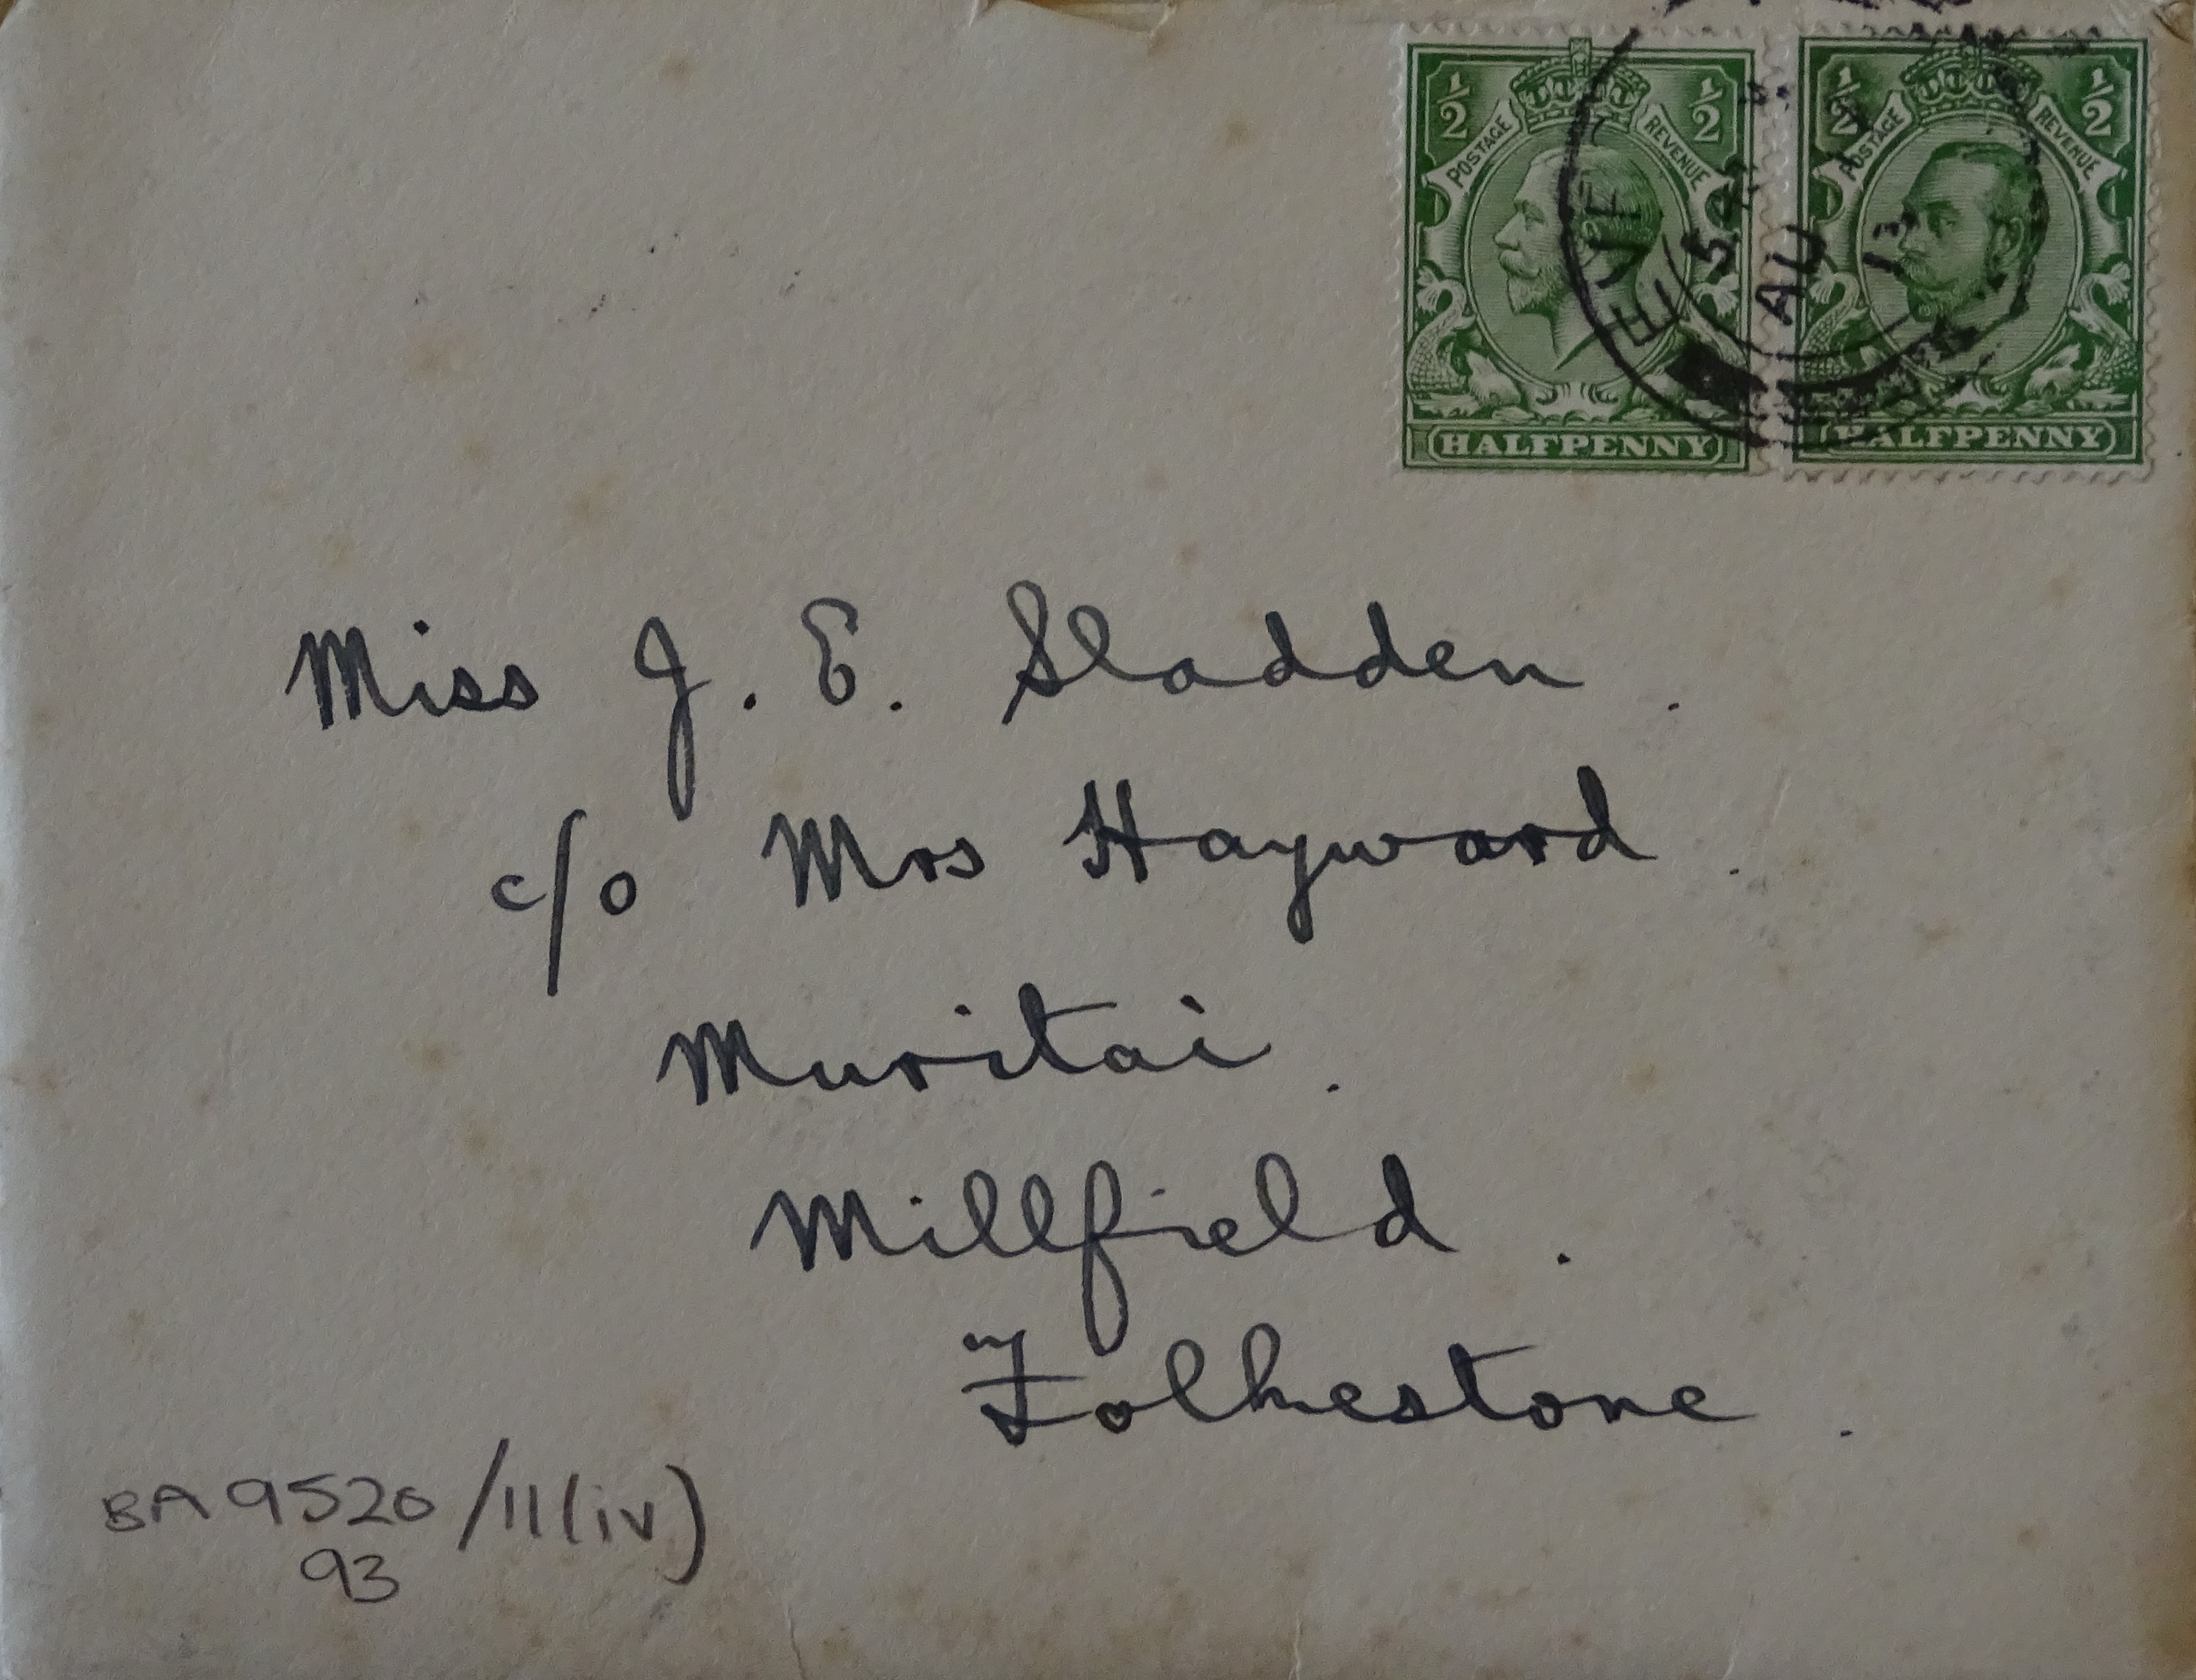 ½ POSTAGE REVENUE ½
HALFPENNY
½ POSTAGE REVENUE ½
HALFPENNY
AU
Miss J. E. Sladden.
c/o Mrs Hayward.
Muritai.
Millfield.
Folkestone.
BA 9520/11(iv)
93